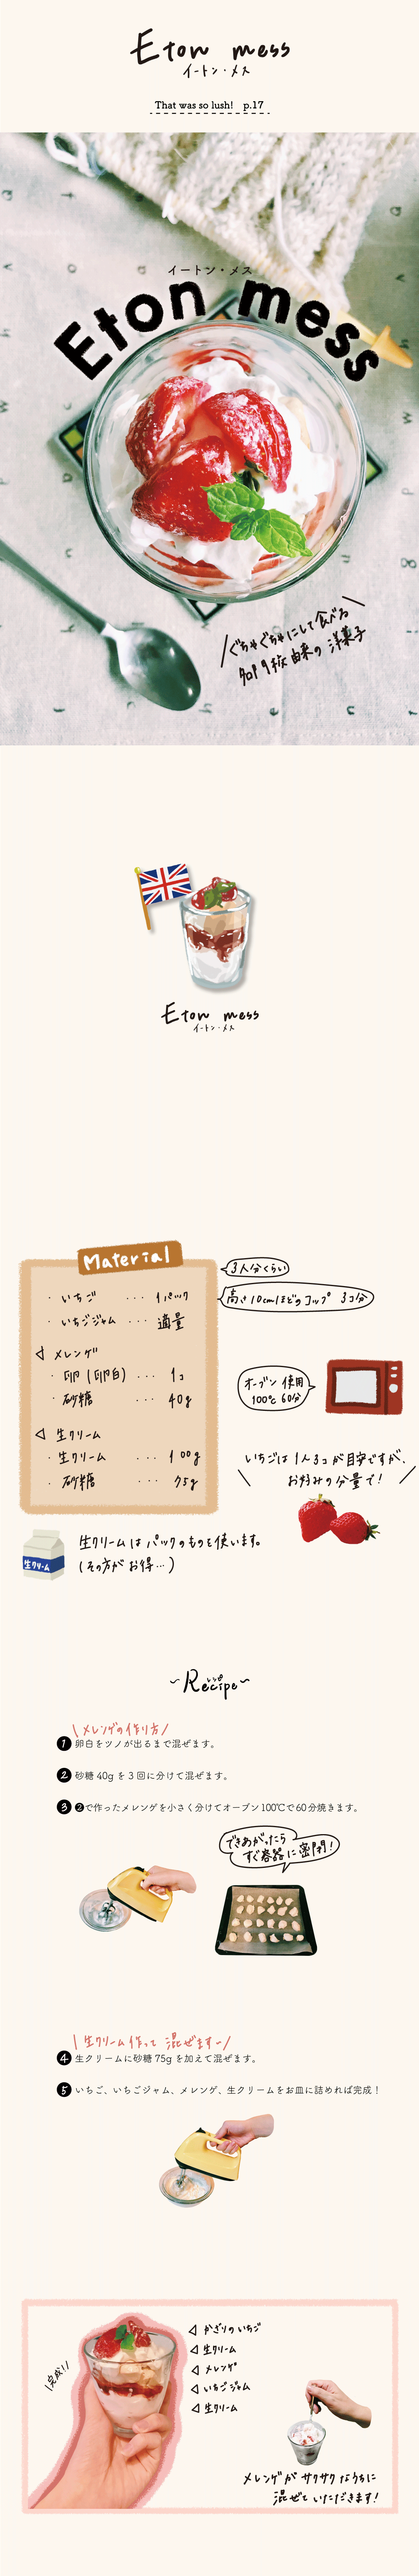 Eton mess
イートン・メス
That was so lush! p.17
イートン・メス
Eton mess
ぐちゃぐちゃにして食べる
名門校由来の洋菓子
Eton mess
イートン・メス
Material
・いちご ・・・ 1パック
・いちごジャム ・・・ 適量
◁ メレンゲ
・卵(卵白) ・・・ 1コ
・砂糖 ・・・ 40g
◁ 生クリーム
・生クリーム ・・・ 100g
・砂糖 ・・・ 75g
3人分くらい
高さ10cmほどのコップ 3コ分
オーブン使用
100℃ 60分
いちごは1人3コが目安ですが、
お好みの分量で!
生クリーム
生クリームはパックのものを使います。
(その方がお得…)
~Recipe~
レシピ
\メレンゲの作り方/
1 卵白をツノが出るまで混ぜます。
2 砂糖 40g を 3 回に分けて混ぜます。
3 ❷で作ったメレンゲを小さく分けてオーブン 100℃で 60 分焼きます。
できあがったら
すぐ容器に密閉!
\生クリーム作って 混ぜますー/
4 生クリームに砂糖 75g を加えて混ぜます。
5 いちご、いちごジャム、メレンゲ、生クリームをお皿に詰めれば完成!
\完成!/
◁ かざりのいちご
◁ 生クリーム
◁ メレンゲ
◁ いちごジャム
◁ 生クリーム
メレンゲがサクサクなうちに
混ぜていただきます!